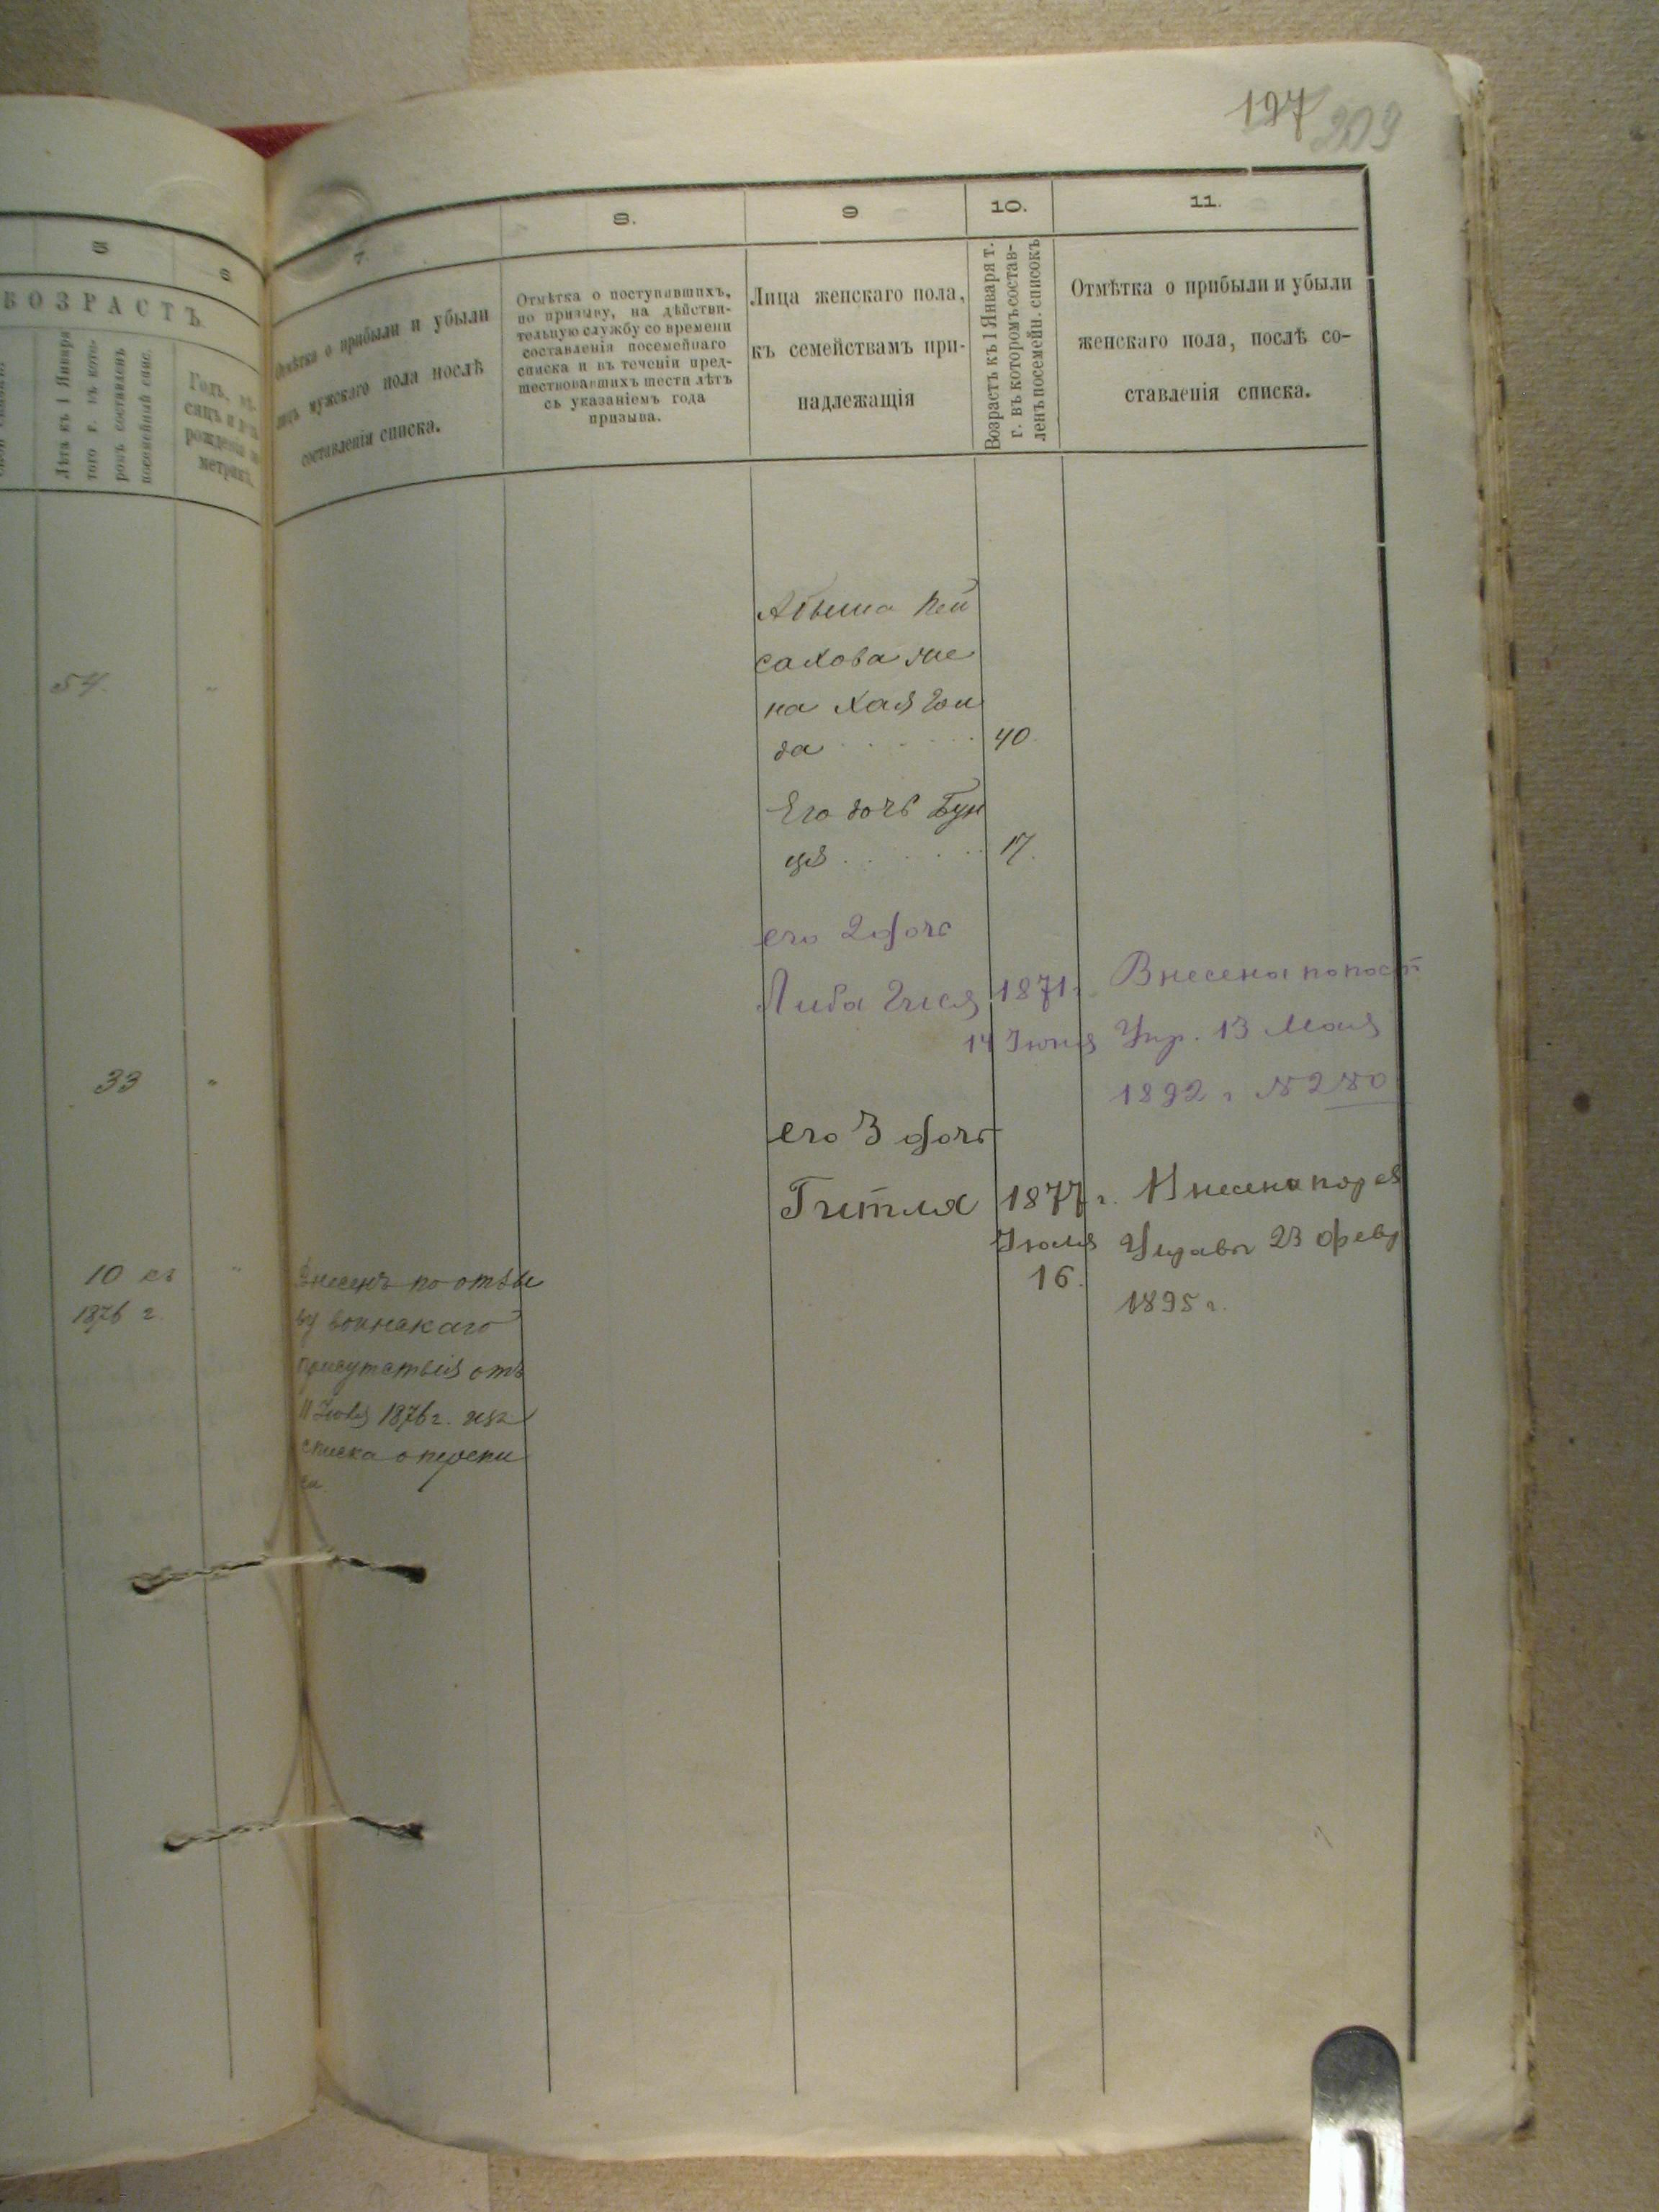 197 209
5
6
ВОЗРАСТЪ
Лѣта къ 1 Января
того г. въ кото-
ромъ составленъ
посемейный спис.
Годъ, мѣ-
сяцъ и день
рожденія по
метрикѣ.
54.
33
10 съ
1876 г.
7.
8.
9
10.
11.
Отмѣтка о прибыли и убыли
лицъ мужскаго пола послѣ
составленія списка.
Отмѣтка о поступившихъ,
по призыву, на дѣйстви-
тельную службу со времени
составленія посемейнаго
списка и въ теченіи пред-
шествовавшихъ шести лѣтъ
съ указаніемъ года
призыва.
Лица женскаго пола,
къ семействамъ при-
надлежащія
Возрастъ къ 1 Января т.
г. въ которомъ состав-
ленъ посемейн. списокъ
Отмѣтка о прибыли и убыли
женскаго пола, послѣ со-
ставленія списка.
Пей
сахова же
на Хая Гол
да 40.
Его дочь Бун
ця 17.
его 2 дочь
Либа Гися 1871 г. Внесена по пост
14 Іюня Упр. 13 Мая
1892 г. №
его 3 дочь
Гитля 1877 г. Внесена по
Іюля Управы 23 февр
16. 1895 г.
Внесенъ по отзы
ву воинскаго
присутствія отъ
11 1876 г. изъ
списка о перепи
си